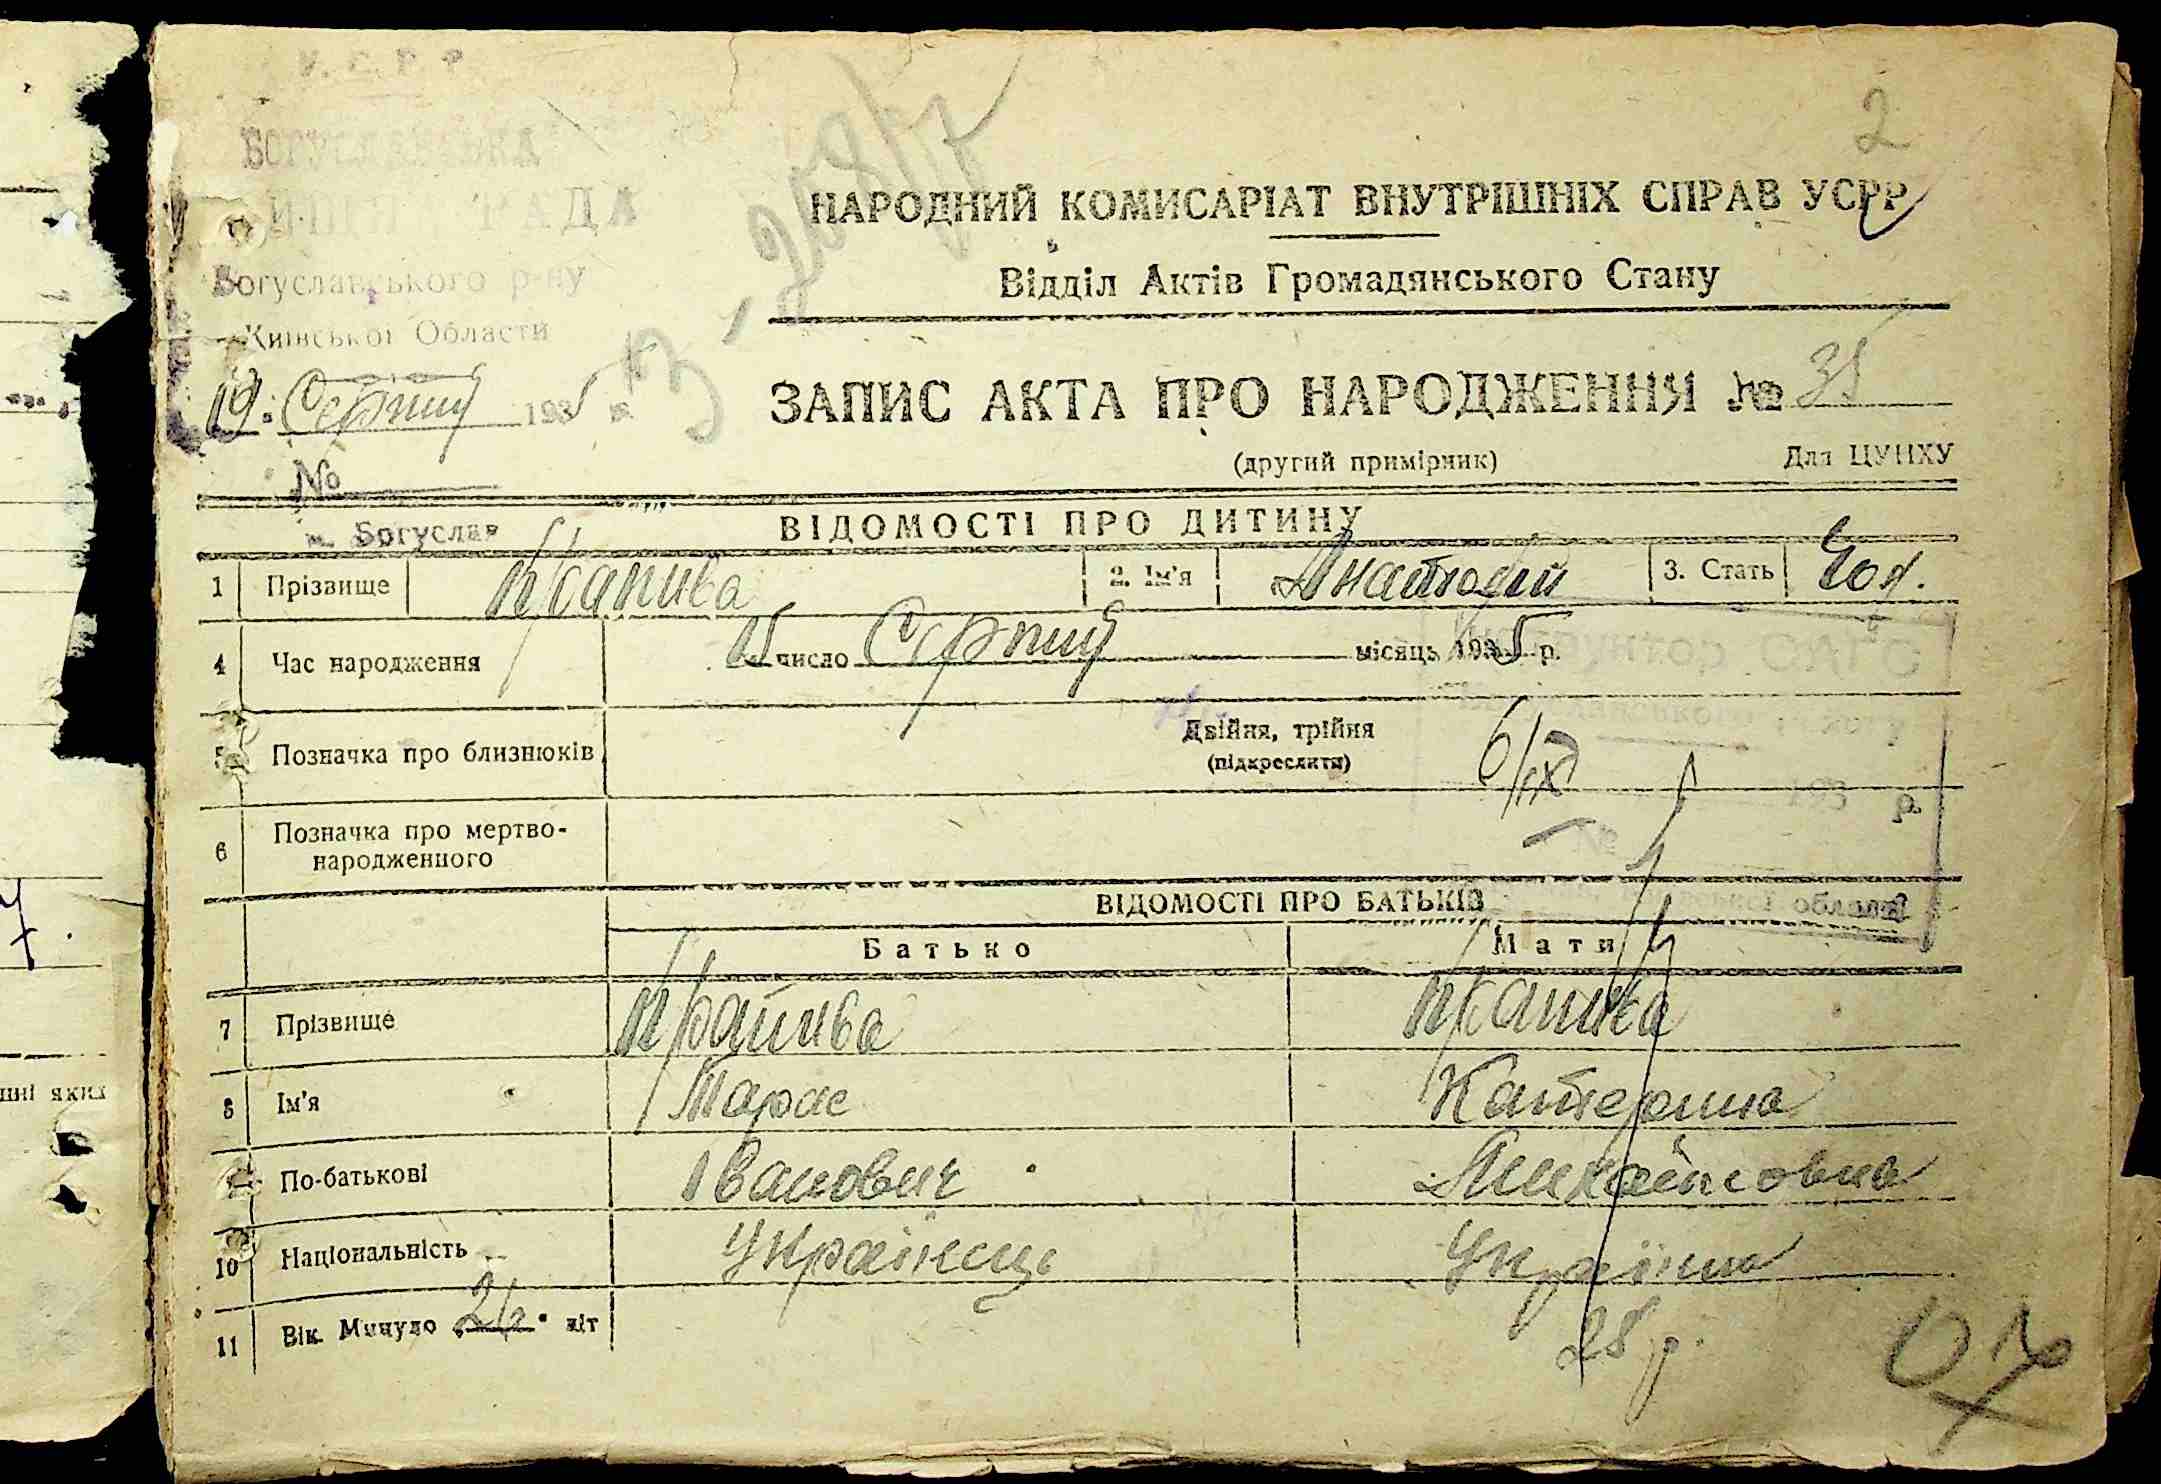 У.С.Р.Р.
БОГУСЛАВСЬКА
РАДА
Богуславського р-ну
Київської Области
19 Серпня 1935 р.
№
м. Богуслав
2
НАРОДНИЙ КОМИСАРІАТ ВНУТРІШНІХ СПРАВ УСРР
Відділ Актів Громадянського Стану
ЗАПИС АКТА ПРО НАРОДЖЕННЯ № 35
(другий примірник) Для ЦУНХУ
ВІДОМОСТІ ПРО ДИТИНУ
1 Прізвище Крапива 2. Ім'я Анатолій 3. Стать Чол.
4 Час народження 15 число Серпня місяць 1935 р.
5 Позначка про близнюків Двійня, трійня
(підкреслити)
6/IX
193 р.
№
6 Позначка про мертво-
народженного
області
ВІДОМОСТІ ПРО БАТЬКІВ
Батько Мати
7 Прізвище Крапива Крапива
8 Ім'я Тарас Катерина
По-батькові Іванович Михайловна
10 Національність Українець Українка
11 Вік. Минуло 26 літ 28 р.
шні яких